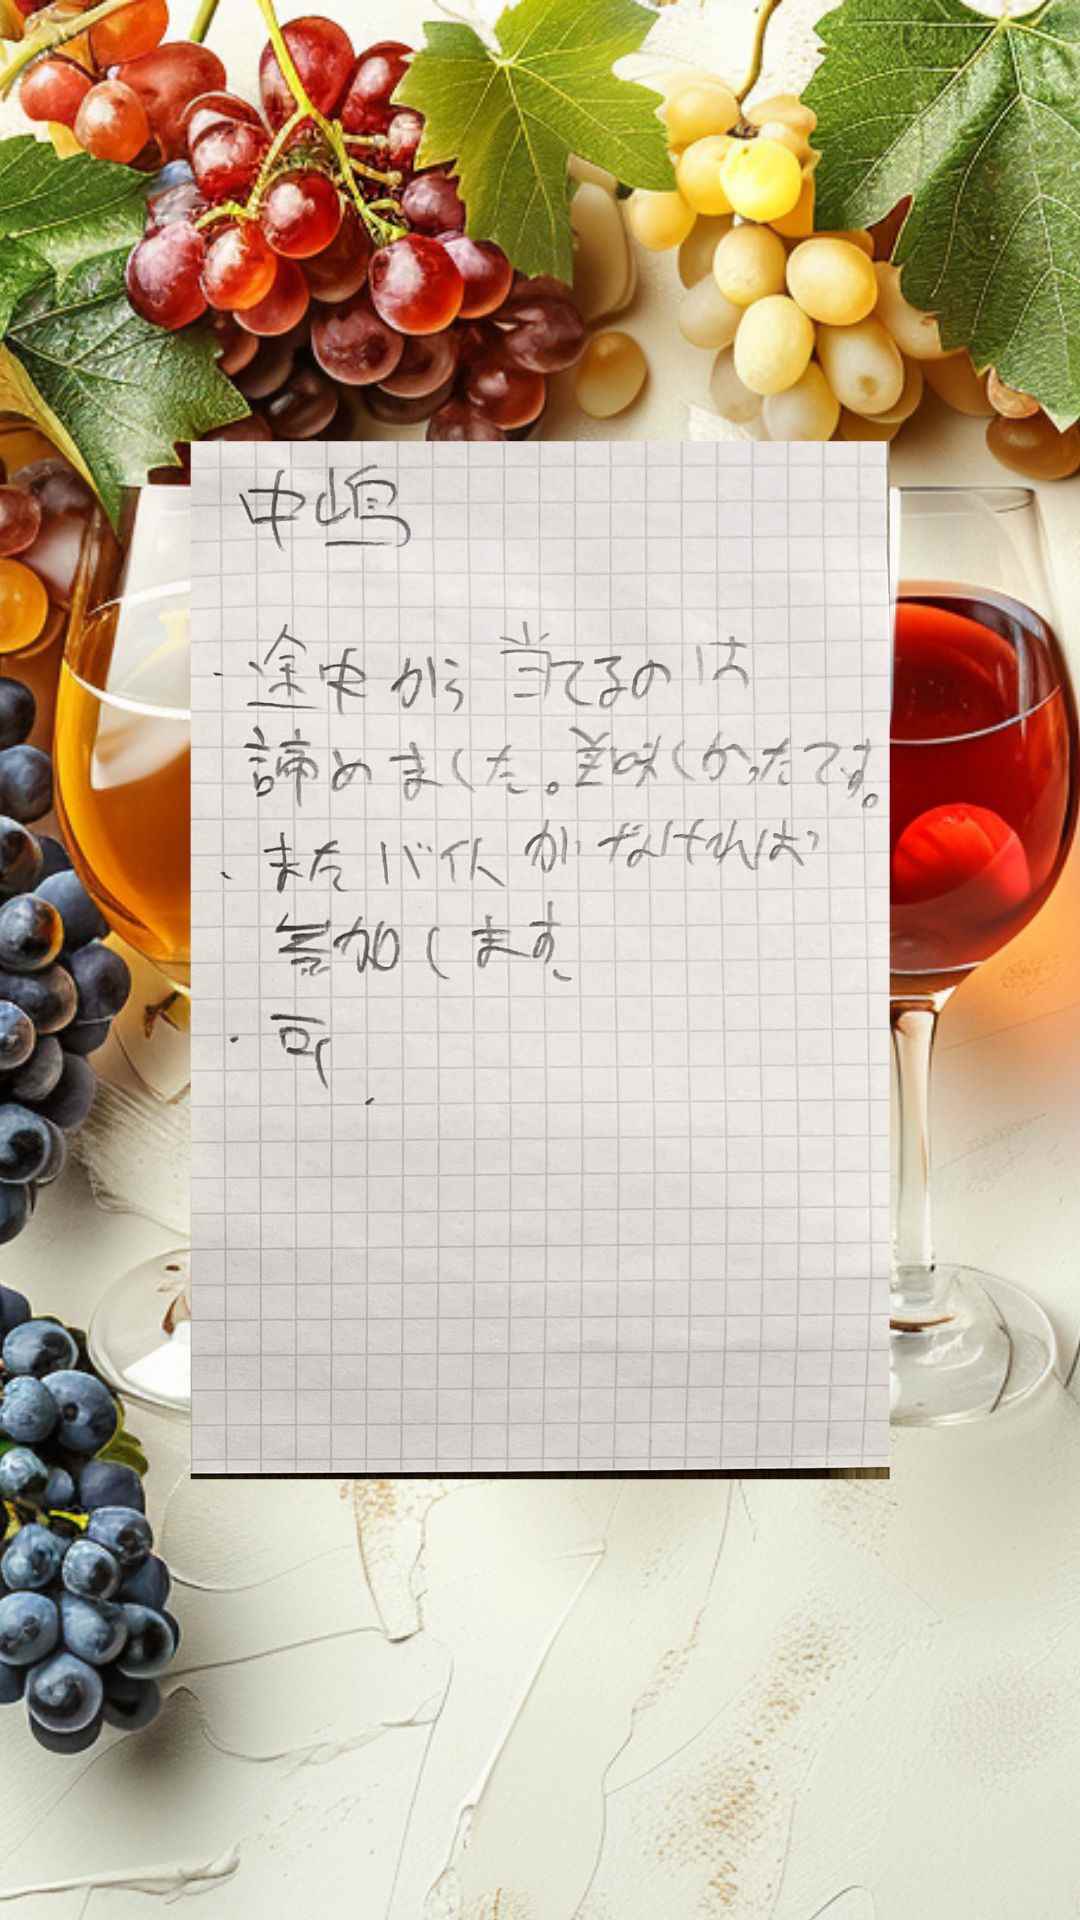 中嶋
・途中から当てるのは
諦めました。美味しかったです。
・またバイトがなければ
参加します
・可.